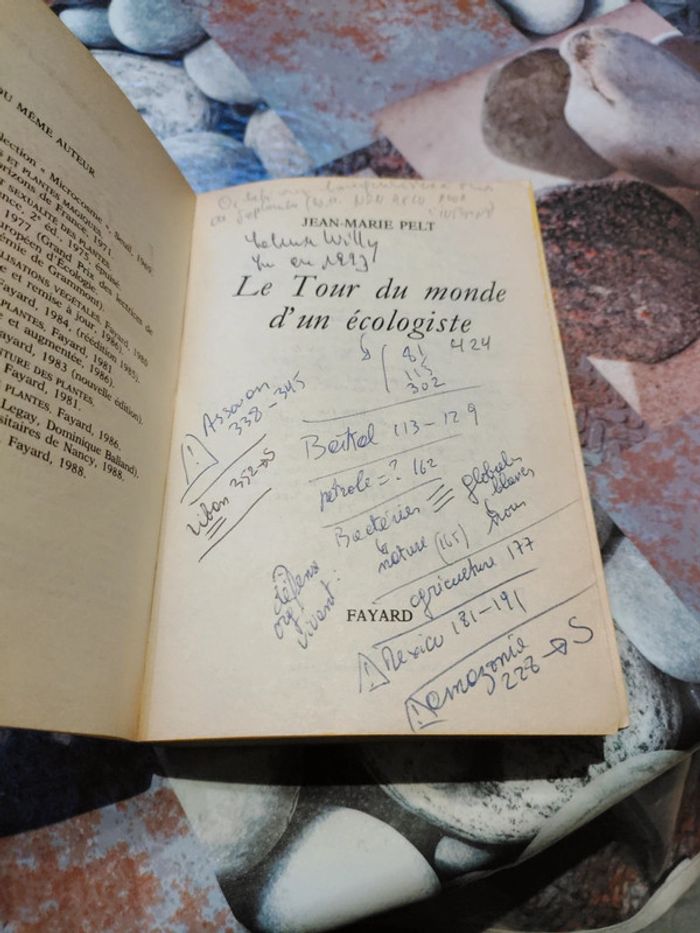 DU MÊME AUTEUR
Collection « Microcosme », Seuil, 1965
ET PLANTES MAGIQUES,
Horizons de France, 1971.
SEXUALITÉ DES PLANTES,
2e éd. 1975, épuisé.
1977 (Grand Prix des lectrices de
Européen d'Écologie
Académie de Grammont).
VÉGÉTALES, Fayard, 1980
et remise à jour, 1986).
Fayard, 1984, (réédition 1985).
PLANTES, Fayard, 1981
et augmentée, 1986).
Fayard, 1983 (nouvelle édition).
DES PLANTES,
Fayard, 1981.
PLANTES, Fayard, 1986.
Legay, Dominique Balland).
Universitaires de Nancy, 1988.
Fayard, 1988.
JEAN-MARIE PELT
Willy
Lu en 1993
Le Tour du monde
d'un écologiste
81 424
115
302
! Assouan
338-345
Liban 352→S
Bhopal 113-129
pétrole = ? 162
Bactéries = globules
blancs
nature (165) nous
défense
org
vivant :
agriculture 177
FAYARD
! Mexico 181-191
! Amazonie
228→S